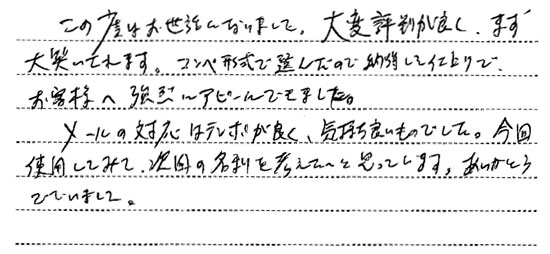 この度はお世話になりました。大変評判が良く、まず
大笑いされます。コンペ形式で選んだので納得して仕上りで、
お客様へ強烈にアピールできました。
メールの対応はテンポが良く、気持ち良いものでした。今回
使用してみて、次回の名刺を考えたいと思っています。ありがとう
ございました。